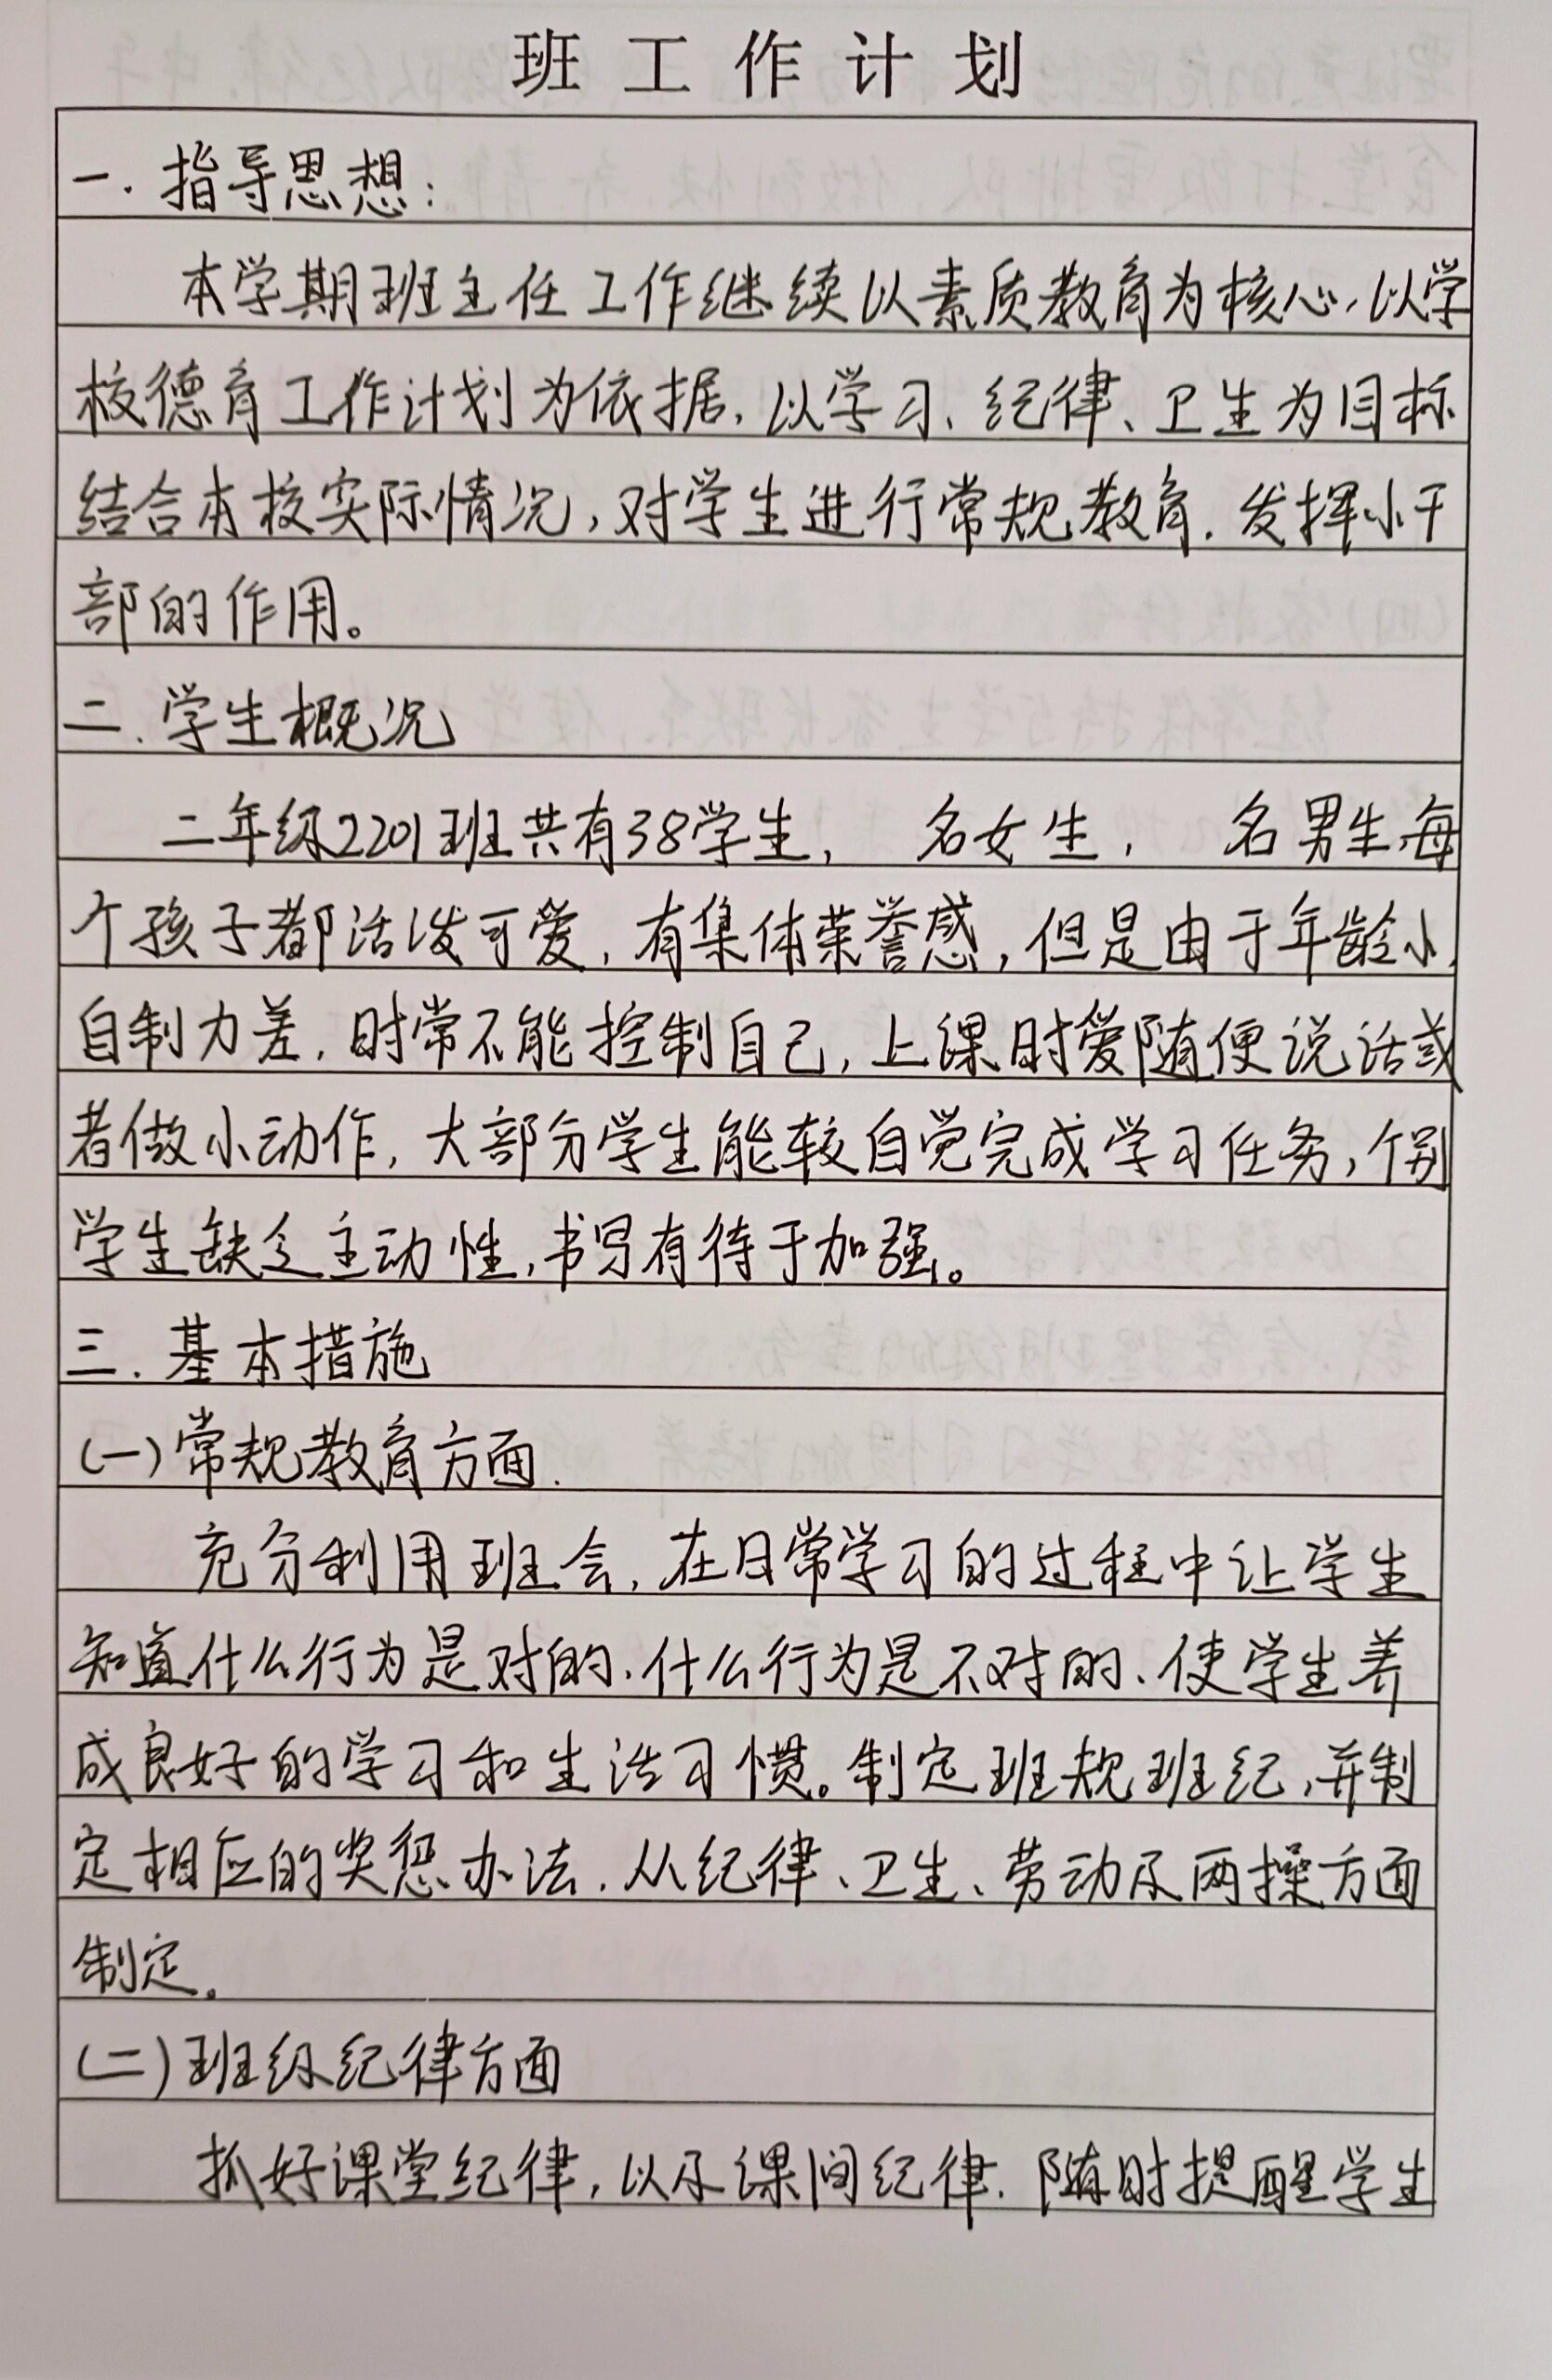 班工作计划
一.指导思想:
本学期班主任工作继续以素质教育为核心,以学
校德育工作计划为依据,以学习、纪律、卫生为目标
结合本校实际情况,对学生进行常规教育.发挥小干
部的作用。
二.学生概况
二年级2201班共有38学生, 名女生, 名男生,每
个孩子都活泼可爱,有集体荣誉感,但是由于年龄小,
自制力差,时常不能控制自己,上课时爱随便说话或
者做小动作,大部分学生能较自觉完成学习任务,个别
学生缺乏主动性,书写有待于加强。
三.基本措施
(一)常规教育方面.
充分利用班会,在日常学习的过程中让学生
知道什么行为是对的、什么行为是不对的、使学生养
成良好的学习和生活习惯。制定班规班纪,并制
定相应的奖惩办法.从纪律、卫生、劳动及两操方面
制定。
(二)班级纪律方面
抓好课堂纪律,以及课间纪律.随时提醒学生